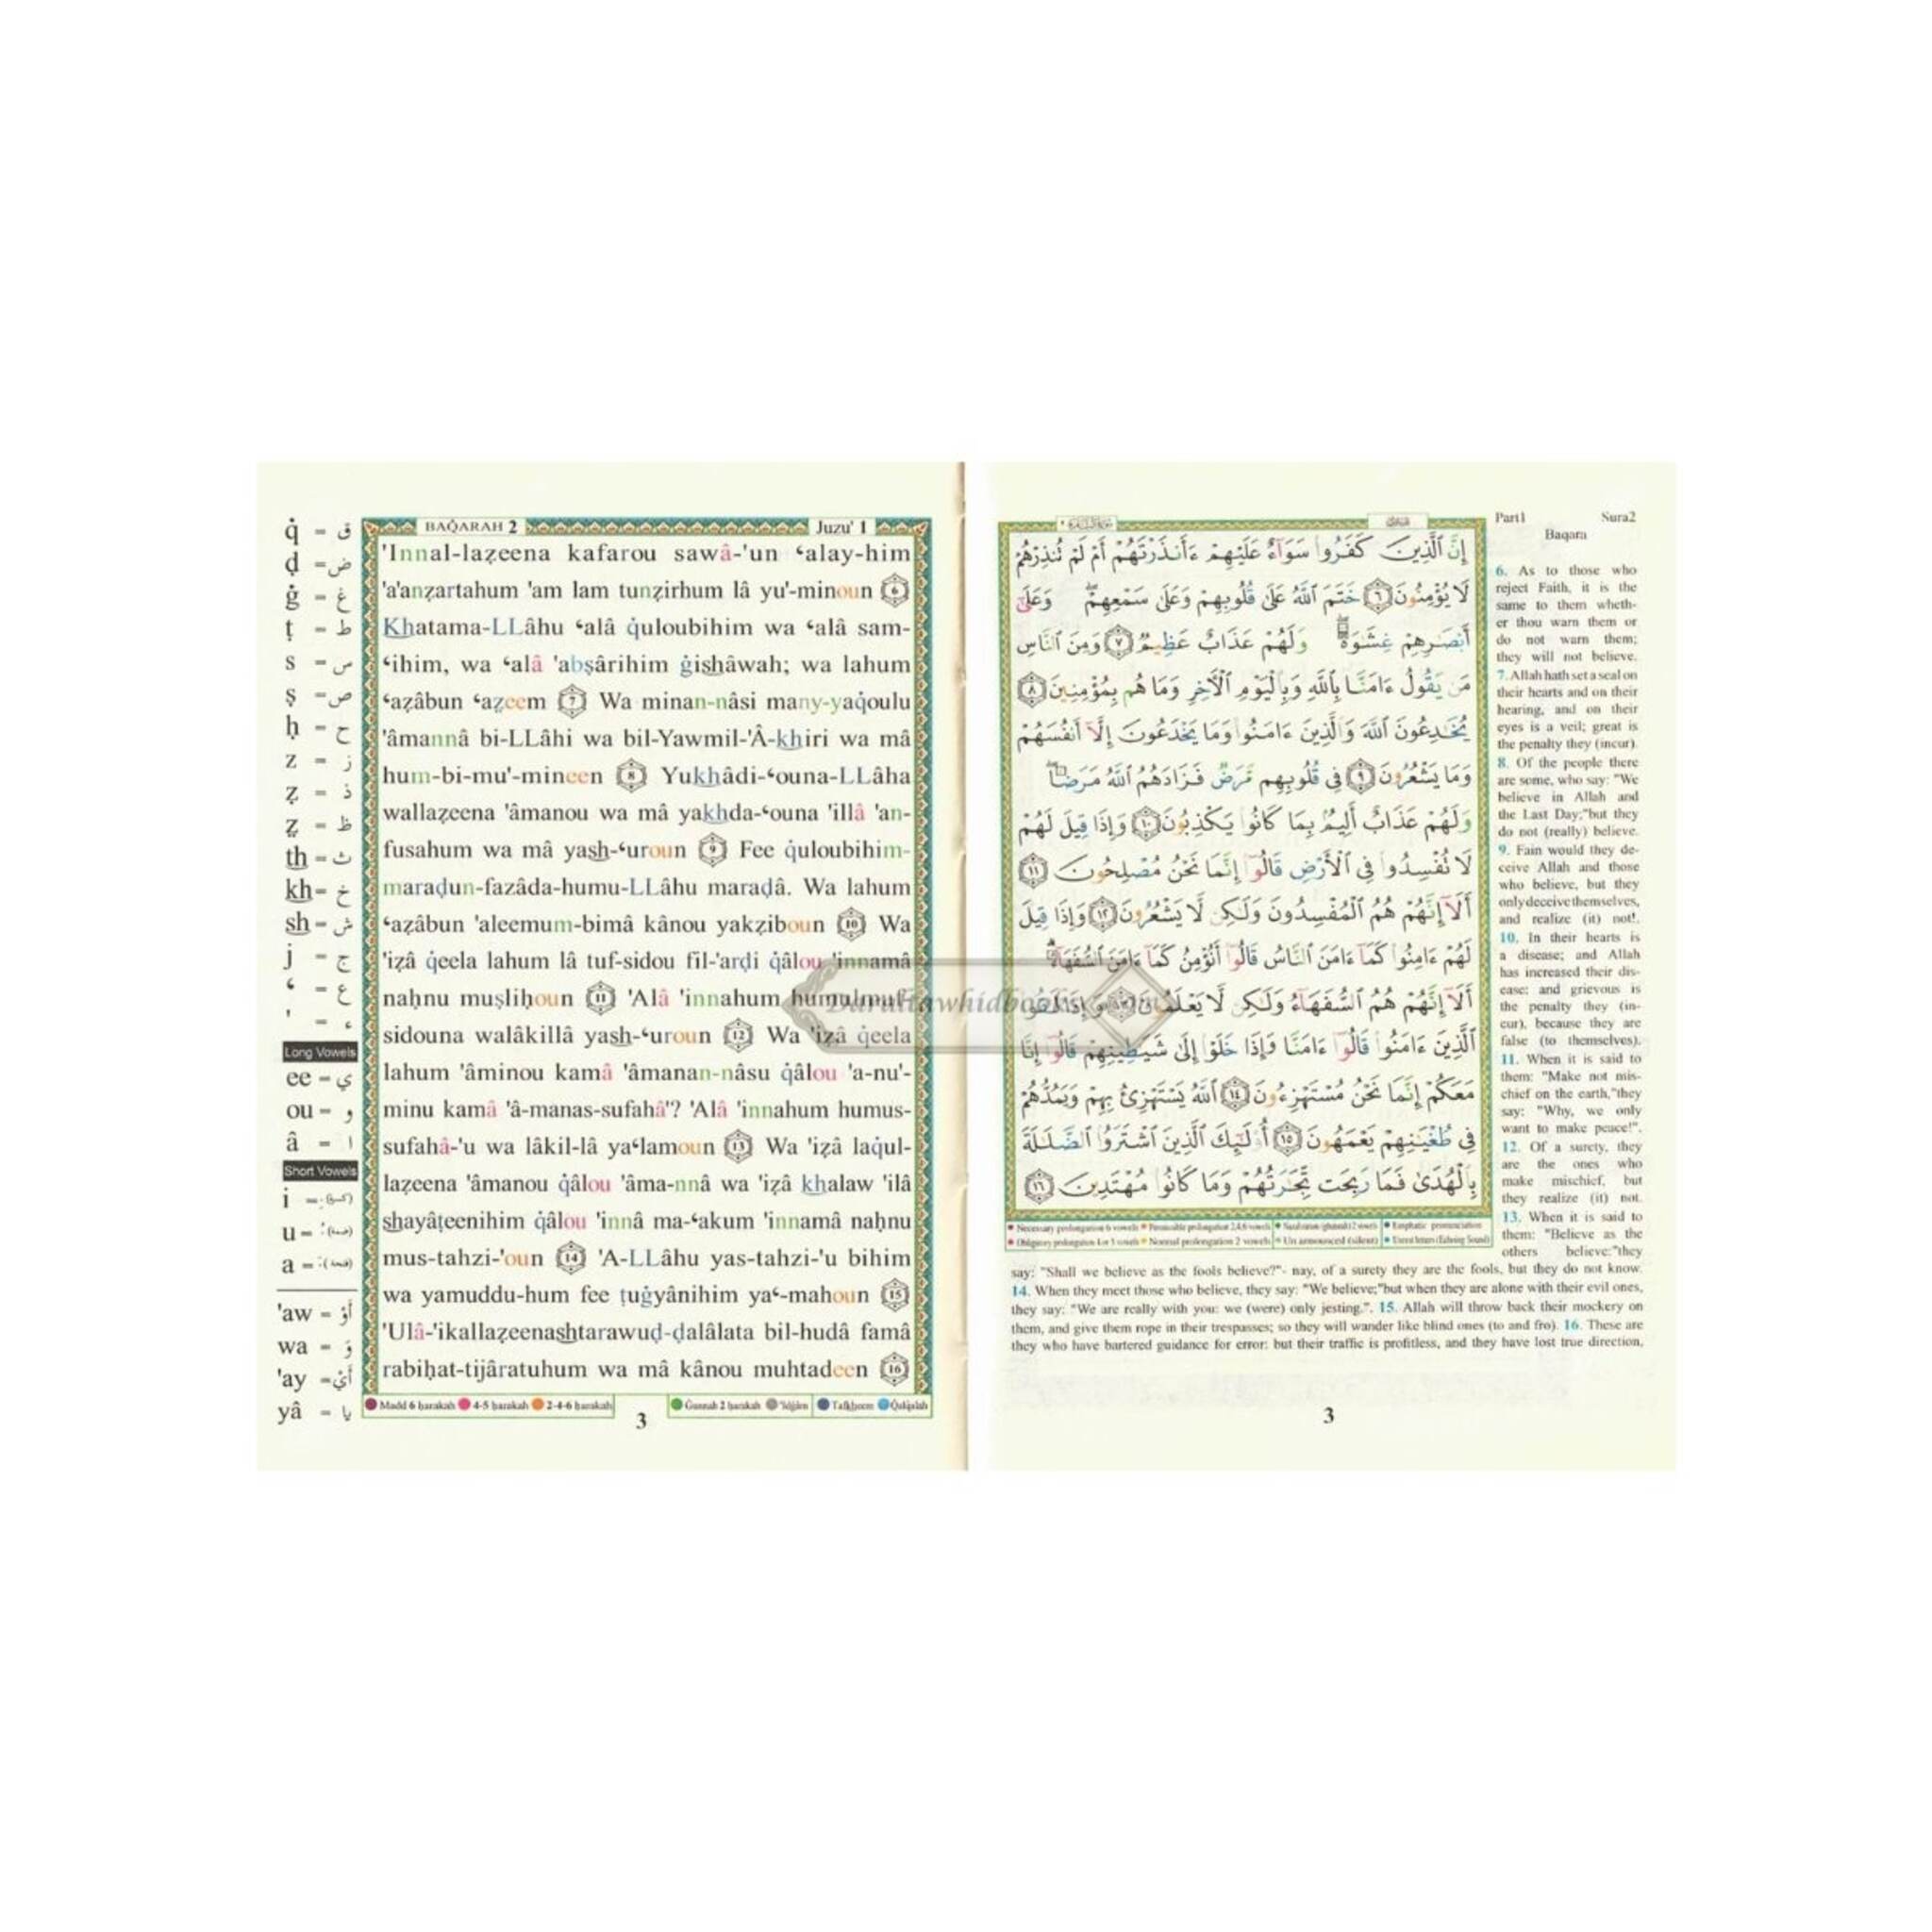 q̇ = ق
ḍ = ض
ġ = غ
ṭ = ط
s = س
ṣ = ص
ḥ = ح
z = ز
ẓ = ذ
ẓ̤ = ظ
th = ث
kh = خ
sh = ش
j = ج
‘ = ع
' = ء
Long Vowels
ee = ي
ou = و
â = ا
Short Vowels
i =
u =
a =
'aw = أَوْ
wa = وَ
'ay = أَيْ
yâ = يا
BAQ̇ARAH 2
Juzu' 1
'Innal-laẓeena kafarou sawâ-'un ‘alay-him
'a'anẓartahum 'am lam tunẓirhum lâ yu'-minoun 6
Khatama-LLâhu ‘alâ q̇uloubihim wa ‘alâ sam-
‘ihim, wa ‘alâ 'abṣârihim ġishâwah; wa lahum
‘aẓâbun ‘aẓ̤eem 7 Wa minan-nâsi many-yaq̇oulu
'âmannâ bi-LLâhi wa bil-Yawmil-'Â-khiri wa mâ
hum-bi-mu'-mineen 8 Yukhâdi-‘ouna-LLâha
wallaẓeena 'âmanou wa mâ yakhda-‘ouna 'illâ 'an-
fusahum wa mâ yash-‘uroun 9 Fee q̇uloubihim-
maraḍun-fazâda-humu-LLâhu maraḍâ. Wa lahum
‘aẓâbun 'aleemum-bimâ kânou yakẓiboun 10 Wa
'iẓâ q̇eela lahum lâ tuf-sidou fil-'arḍi q̇âlou 'innamâ
naḥnu muṣliḥoun 11 'Alâ 'innahum humulmuf-
sidouna walâkillâ yash-‘uroun 12 Wa 'iẓâ q̇eela
lahum 'âminou kamâ 'âmanan-nâsu q̇âlou 'a-nu'-
minu kamâ 'â-manas-sufahâ'? 'Alâ 'innahum humus-
sufahâ-'u wa lâkil-lâ ya‘lamoun 13 Wa 'iẓâ laq̇ul-
laẓeena 'âmanou q̇âlou 'âma-nnâ wa 'iẓâ khalaw 'ilâ
shayâṭeenihim q̇âlou 'innâ ma-‘akum 'innamâ naḥnu
mus-tahzi-'oun 14 'A-LLâhu yas-tahzi-'u bihim
wa yamuddu-hum fee ṭuġyânihim ya‘-mahoun 15
'Ulâ-'ikallaẓeenashtarawuḍ-ḍalâlata bil-hudâ famâ
rabiḥat-tijâratuhum wa mâ kânou muhtadeen 16
Madd 6 ḥarakah 4-5 ḥarakah 2-4-6 ḥarakah
Ġunnah 2 ḥarakah 'Idġâm Tafkheem Q̇alq̇alah
3
إِنَّ ٱلَّذِينَ كَفَرُوا۟ سَوَآءٌ عَلَيْهِمْ ءَأَنذَرْتَهُمْ أَمْ لَمْ تُنذِرْهُمْ
لَا يُؤْمِنُونَ ٦ خَتَمَ ٱللَّهُ عَلَىٰ قُلُوبِهِمْ وَعَلَىٰ سَمْعِهِمْ ۖ وَعَلَىٰٓ
أَبْصَـٰرِهِمْ غِشَـٰوَةٌ ۖ وَلَهُمْ عَذَابٌ عَظِيمٌ ٧ وَمِنَ ٱلنَّاسِ
مَن يَقُولُ ءَامَنَّا بِٱللَّهِ وَبِٱلْيَوْمِ ٱلْـَٔاخِرِ وَمَا هُم بِمُؤْمِنِينَ ٨
يُخَـٰدِعُونَ ٱللَّهَ وَٱلَّذِينَ ءَامَنُوا۟ وَمَا يَخْدَعُونَ إِلَّآ أَنفُسَهُمْ
وَمَا يَشْعُرُونَ ٩ فِى قُلُوبِهِم مَّرَضٌ فَزَادَهُمُ ٱللَّهُ مَرَضًا ۖ
وَلَهُمْ عَذَابٌ أَلِيمٌۢ بِمَا كَانُوا۟ يَكْذِبُونَ ١٠ وَإِذَا قِيلَ لَهُمْ
لَا تُفْسِدُوا۟ فِى ٱلْأَرْضِ قَالُوٓا۟ إِنَّمَا نَحْنُ مُصْلِحُونَ ١١
أَلَآ إِنَّهُمْ هُمُ ٱلْمُفْسِدُونَ وَلَـٰكِن لَّا يَشْعُرُونَ ١٢ وَإِذَا قِيلَ
لَهُمْ ءَامِنُوا۟ كَمَآ ءَامَنَ ٱلنَّاسُ قَالُوٓا۟ أَنُؤْمِنُ كَمَآ ءَامَنَ ٱلسُّفَهَآءُ ۗ
أَلَآ إِنَّهُمْ هُمُ ٱلسُّفَهَآءُ وَلَـٰكِن لَّا يَعْلَمُونَ ١٣ وَإِذَا لَقُوا۟
ٱلَّذِينَ ءَامَنُوا۟ قَالُوٓا۟ ءَامَنَّا وَإِذَا خَلَوْا۟ إِلَىٰ شَيَـٰطِينِهِمْ قَالُوٓا۟ إِنَّا
مَعَكُمْ إِنَّمَا نَحْنُ مُسْتَهْزِءُونَ ١٤ ٱللَّهُ يَسْتَهْزِئُ بِهِمْ وَيَمُدُّهُمْ
فِى طُغْيَـٰنِهِمْ يَعْمَهُونَ ١٥ أُو۟لَـٰٓئِكَ ٱلَّذِينَ ٱشْتَرَوُا۟ ٱلضَّلَـٰلَةَ
بِٱلْهُدَىٰ فَمَا رَبِحَت تِّجَـٰرَتُهُمْ وَمَا كَانُوا۟ مُهْتَدِينَ ١٦
Part1 Sura2
Baqara
6. As to those who
reject Faith, it is the
same to them wheth-
er thou warn them or
do not warn them;
they will not believe.
7. Allah hath set a seal on
their hearts and on their
hearing, and on their
eyes is a veil; great is
the penalty they (incur).
8. Of the people there
are some, who say: "We
believe in Allah and
the Last Day;"but they
do not (really) believe.
9. Fain would they de-
ceive Allah and those
who believe, but they
only deceive themselves,
and realize (it) not!.
10. In their hearts is
a disease; and Allah
has increased their dis-
ease: and grievous is
the penalty they (in-
cur), because they are
false (to themselves).
11. When it is said to
them: "Make not mis-
chief on the earth,"they
say: "Why, we only
want to make peace!".
12. Of a surety, they
are the ones who
make mischief, but
they realize (it) not.
13. When it is said to
them: "Believe as the
others believe:"they
Necessary prolongation 6 vowels Permissible prolongation 2,4,6 vowels Nazalization (ghunnah) 2 vowels Emphatic pronunciation
Obligatory prolongation 4 or 5 vowels Normal prolongation 2 vowels Un announced (silent) Unrest letters (Echoing Sound)
say: "Shall we believe as the fools believe?"- nay, of a surety they are the fools, but they do not know.
14. When they meet those who believe, they say: "We believe;"but when they are alone with their evil ones,
they say: "We are really with you: we (were) only jesting.". 15. Allah will throw back their mockery on
them, and give them rope in their trespasses; so they will wander like blind ones (to and fro). 16. These are
they who have bartered guidance for error: but their traffic is profitless, and they have lost true direction,
3